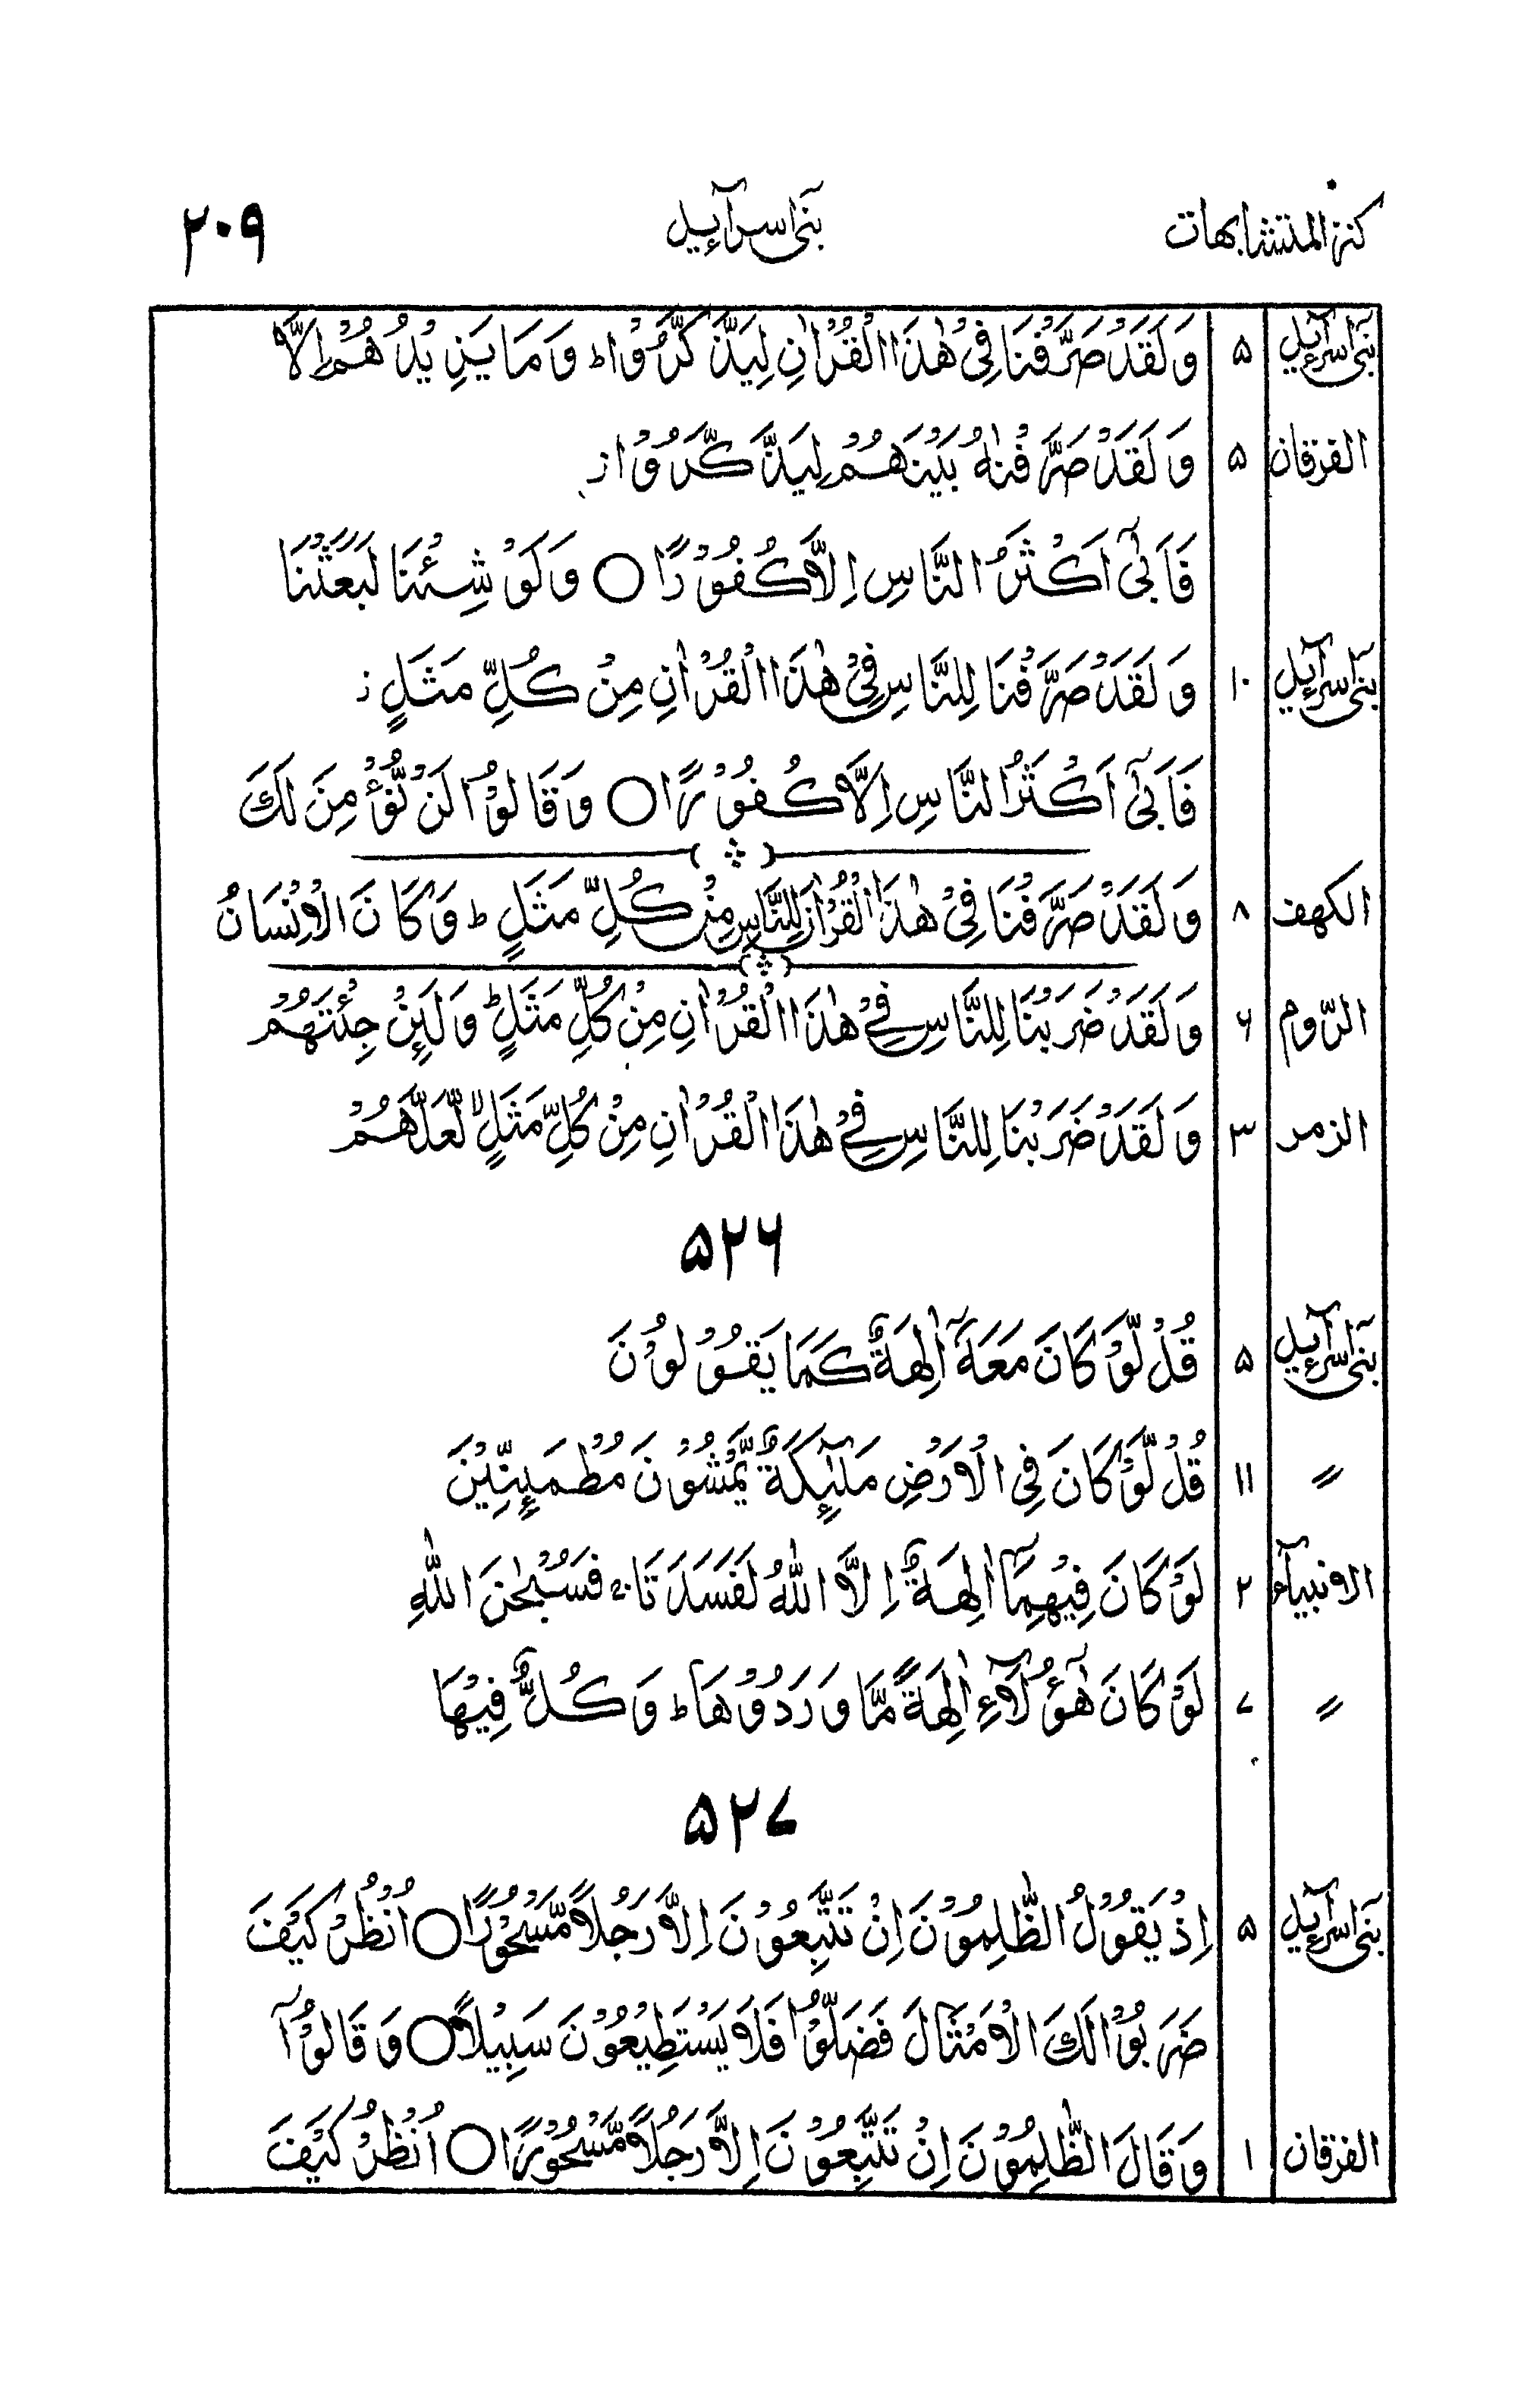 كنز المتشابهات بنی اسرآءیل ۲۰۹
بنی اسرآءیل ۵ وَلَقَدْ صَرَّفْنَا فِیْ هٰذَا الْقُرْاٰنِ لِیَذَّكَّرُوْا ؕ وَمَا یَزِیْدُهُمْ اِلَّا
الفرقان ۵ وَلَقَدْ صَرَّفْنٰهُ بَیْنَهُمْ لِیَذَّكَّرُوْا ز
فَاَبٰۤی اَكْثَرُ النَّاسِ اِلَّا كُفُوْرًا ○ وَلَوْ شِئْنَا لَبَعَثْنَا
بنی اسرآءیل ۱۰ وَلَقَدْ صَرَّفْنَا لِلنَّاسِ فِیْ هٰذَا الْقُرْاٰنِ مِنْ كُلِّ مَثَلٍ ز
فَاَبٰۤی اَكْثَرُ النَّاسِ اِلَّا كُفُوْرًا ○ وَقَالُوْا لَنْ نُّؤْمِنَ لَكَ
الكهف ۸ وَلَقَدْ صَرَّفْنَا فِیْ هٰذَا الْقُرْاٰنِ لِلنَّاسِ مِنْ كُلِّ مَثَلٍ ؕ وَكَانَ الْاِنْسَانُ
الرّوم ۶ وَلَقَدْ ضَرَبْنَا لِلنَّاسِ فِیْ هٰذَا الْقُرْاٰنِ مِنْ كُلِّ مَثَلٍ ؕ وَلَىِٕنْ جِئْتَهُمْ
الزمر ۳ وَلَقَدْ ضَرَبْنَا لِلنَّاسِ فِیْ هٰذَا الْقُرْاٰنِ مِنْ كُلِّ مَثَلٍ ۙ لَّعَلَّهُمْ
۵۲۶
بنی اسرآءیل ۵ قُلْ لَّوْ كَانَ مَعَهٗۤ اٰلِهَةٌ كَمَا یَقُوْلُوْنَ
〃 ۱۱ قُلْ لَّوْ كَانَ فِی الْاَرْضِ مَلٰٓىِٕكَةٌ یَّمْشُوْنَ مُطْمَىِٕنِّیْنَ
الانبیآء ۲ لَوْ كَانَ فِیْهِمَاۤ اٰلِهَةٌ اِلَّا اللّٰهُ لَفَسَدَتَا ۚ فَسُبْحٰنَ اللّٰهِ
〃 ۷ لَوْ كَانَ هٰۤؤُلَآءِ اٰلِهَةً مَّا وَرَدُوْهَا ؕ وَكُلٌّ فِیْهَا
۵۲۷
بنی اسرآءیل ۵ اِذْ یَقُوْلُ الظّٰلِمُوْنَ اِنْ تَتَّبِعُوْنَ اِلَّا رَجُلًا مَّسْحُوْرًا ○ اُنْظُرْ كَیْفَ
ضَرَبُوْا لَكَ الْاَمْثَالَ فَضَلُّوْا فَلَا یَسْتَطِیْعُوْنَ سَبِیْلًا ○ وَقَالُوْۤا
الفرقان ۱ وَقَالَ الظّٰلِمُوْنَ اِنْ تَتَّبِعُوْنَ اِلَّا رَجُلًا مَّسْحُوْرًا ○ اُنْظُرْ كَیْفَ